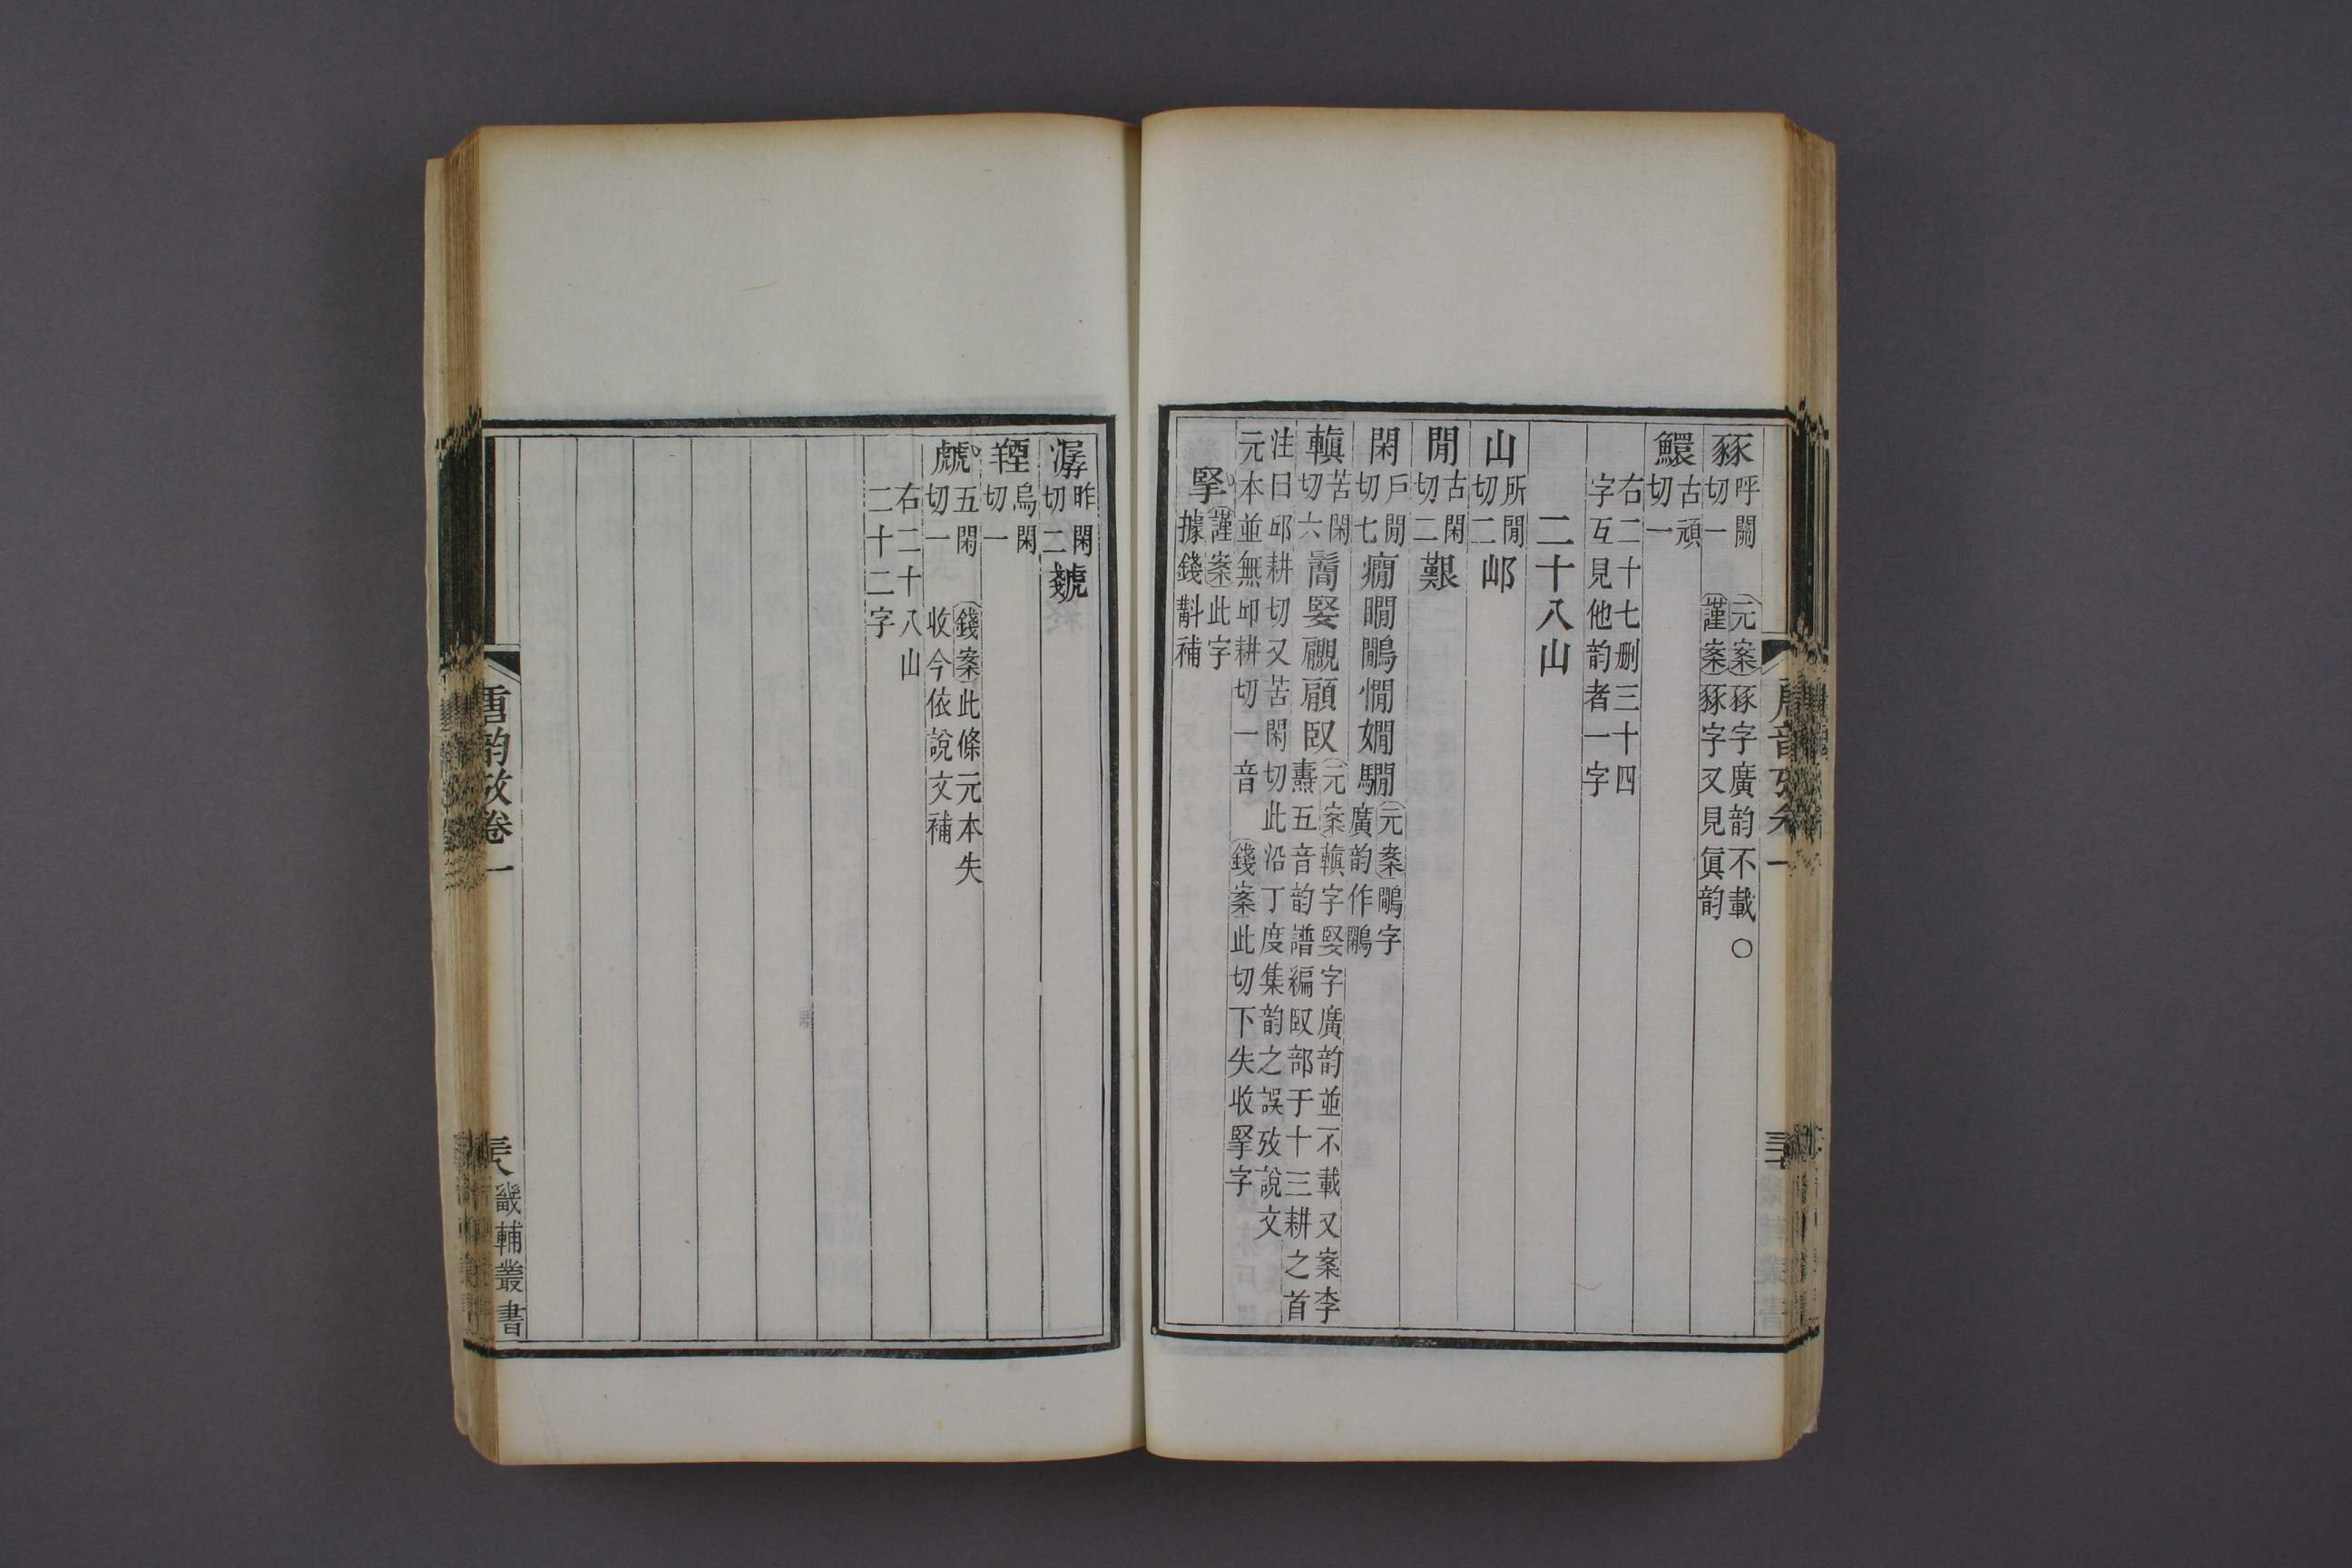 豩呼關切一 元案豩字廣韵不載〇謹案豩字又見眞韵
鰥古頑切一
右二十七刪三十四字互見他韵者一字
二十八山
山所閒切二邖
閒古閑切二艱
閑戶閒切七癇瞯鷴憪嫺騆元案鷴字廣韵作鷳
䡩苦閑切六鬜婜覵顅臤元案䡩字婜字廣韵並不載又案李燾五音韵譜編臤部于十三耕之首
注曰邱耕切又苦閑切此沿丁度集韵之誤攷說文元本並無邱耕切一音 錢案此切下失收掔字
掔謹案此字據錢斠補
潺昨閑切二虥
羥烏閑切一
虤五閑切一 錢案此條元本失收今依說文補
右二十八山二十二字
唐韵攷卷一
畿輔叢書